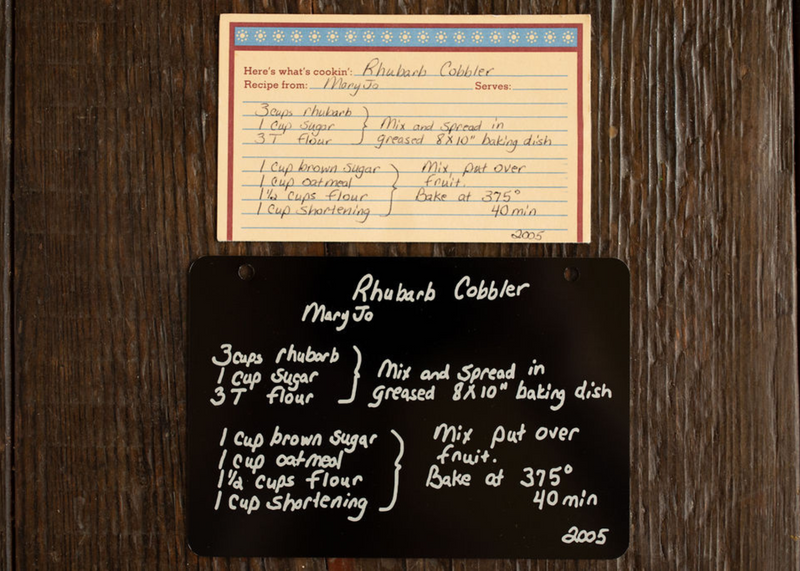 Here's what's cookin': Rhubarb Cobbler
Recipe from: Mary Jo Serves:
3 cups rhubarb
1 cup sugar
3 T flour
Mix and spread in
greased 8X10" baking dish
1 cup brown sugar
1 cup oatmeal
1 1/2 cups flour
1 cup shortening
Mix, put over
fruit.
Bake at 375°
40 min
2005
Rhubarb Cobbler
Mary Jo
3 cups rhubarb
1 cup sugar
3 T flour
Mix and spread in
greased 8X10" baking dish
1 cup brown sugar
1 cup oatmeal
1 1/2 cups flour
1 cup shortening
Mix put over
fruit.
Bake at 375°
40 min
2005